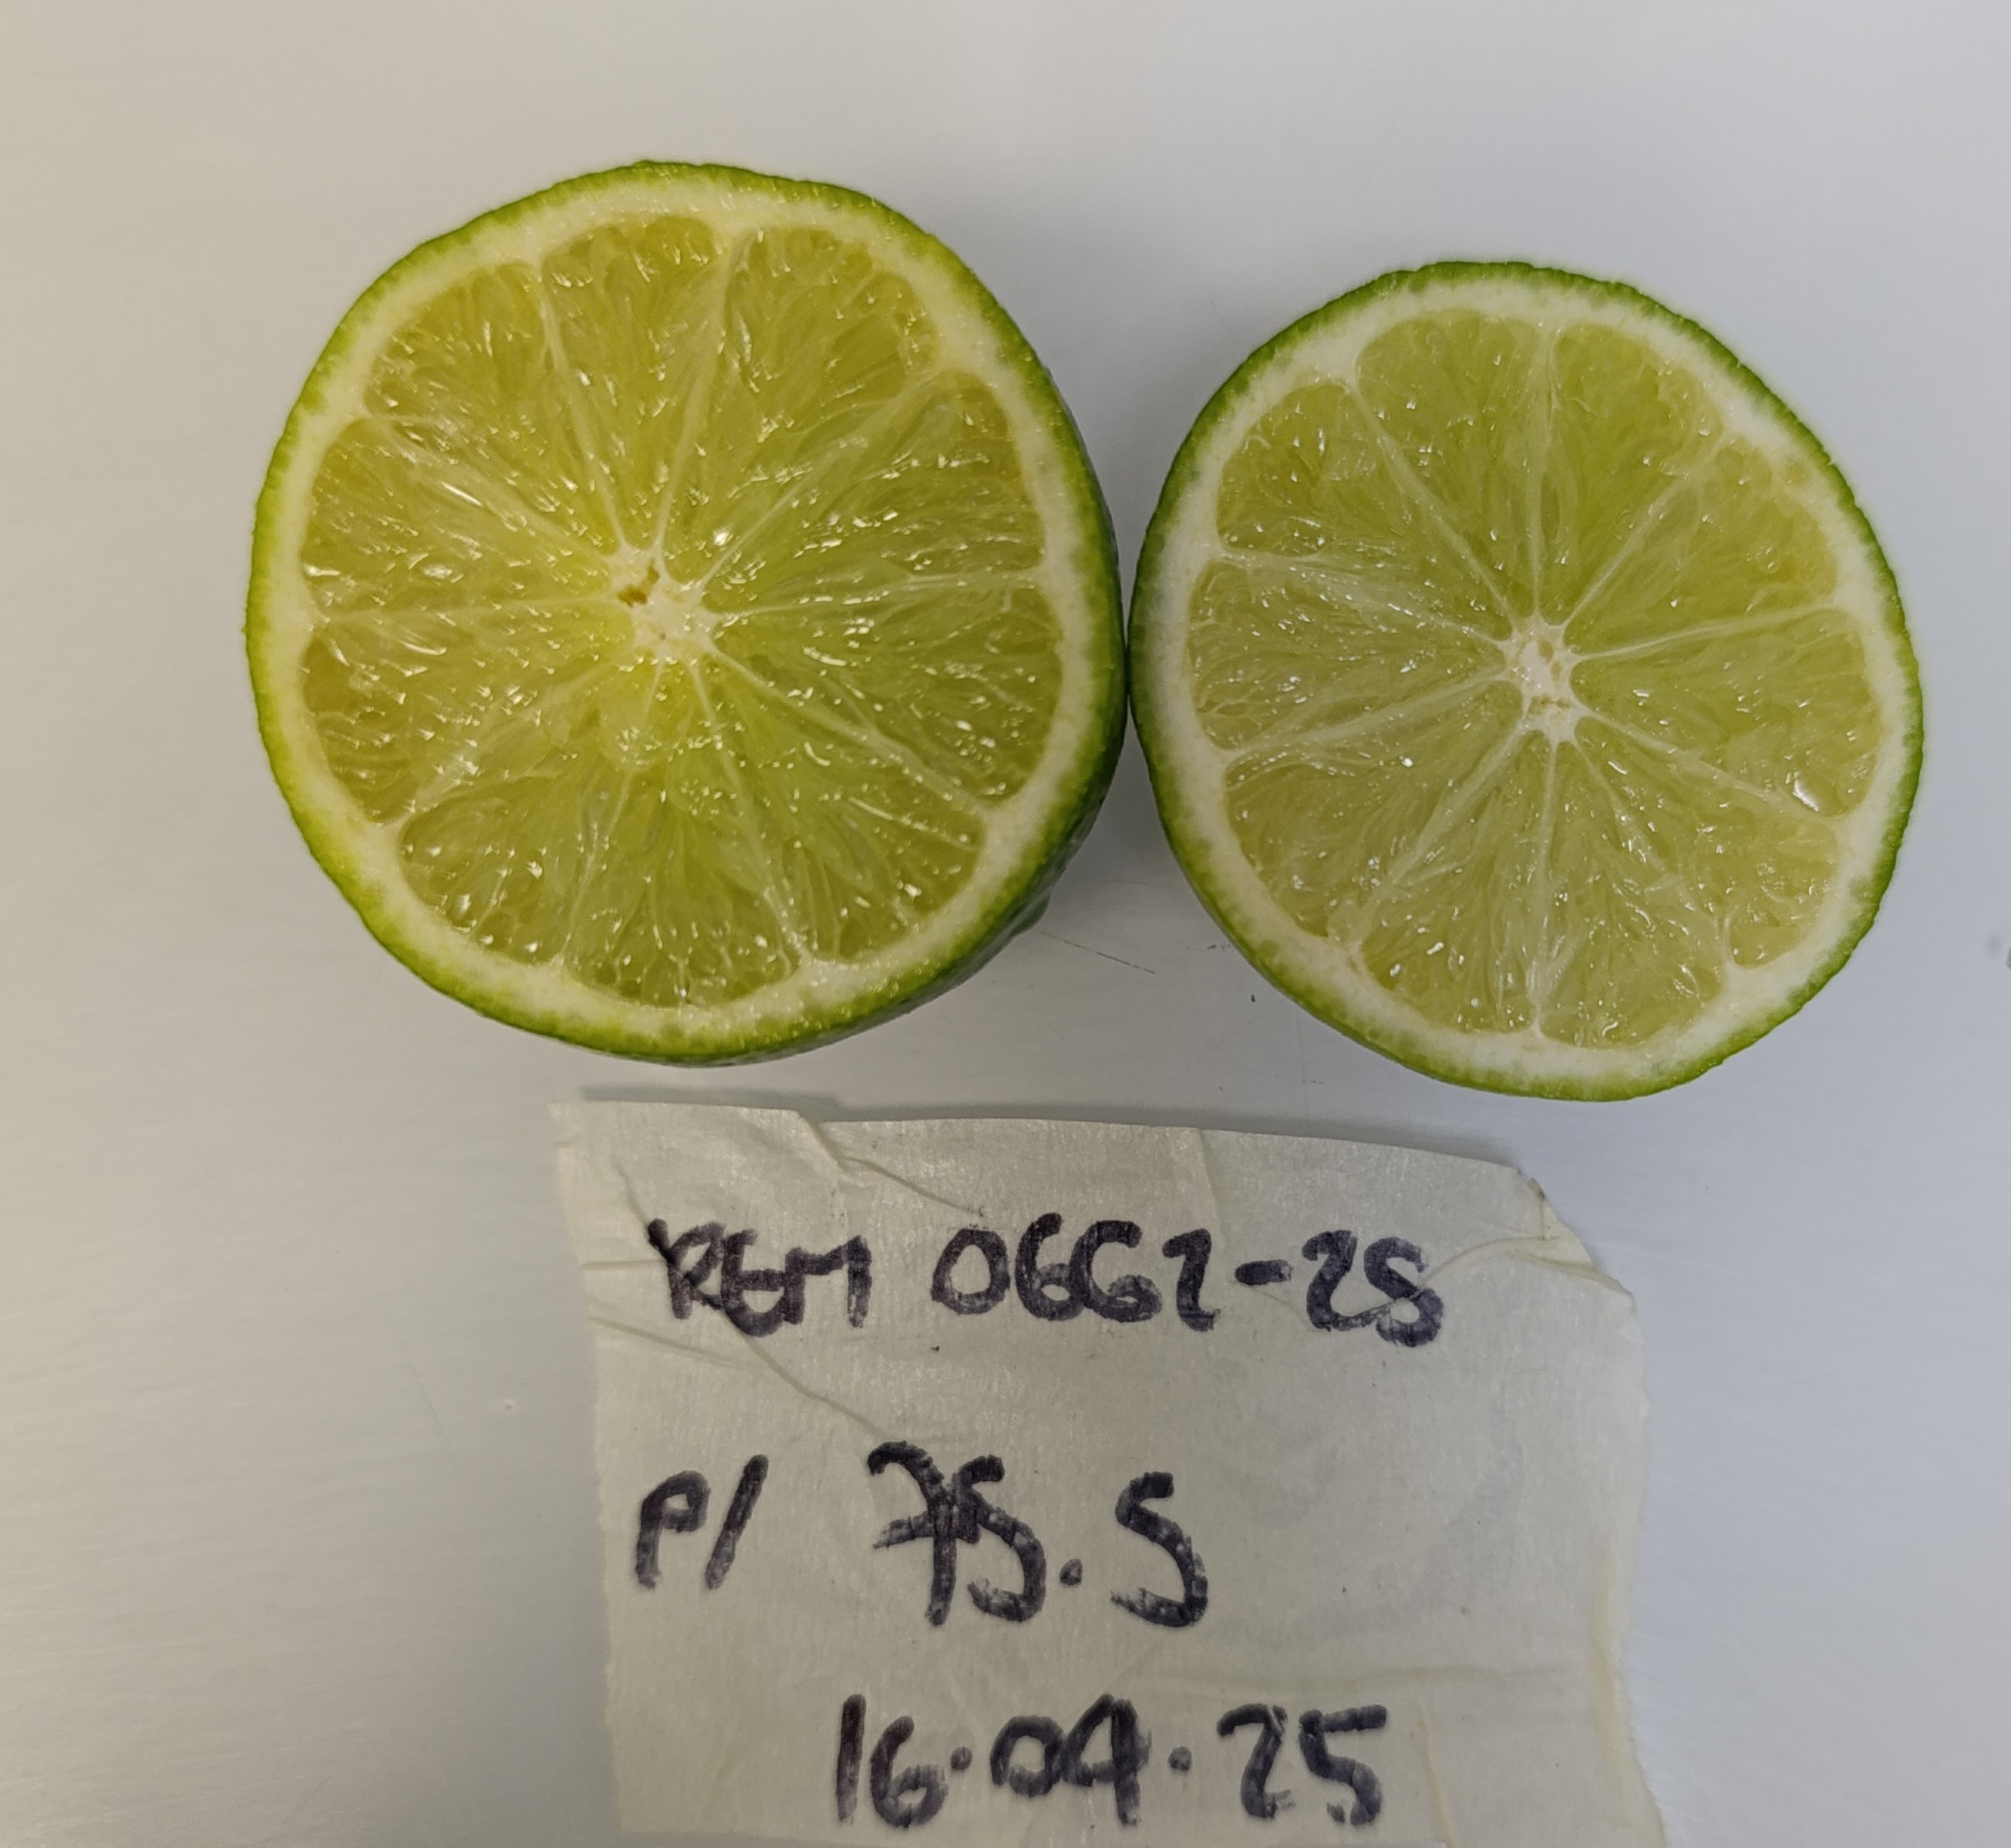 REM 0662-25
P/ 75.5
16.04.25